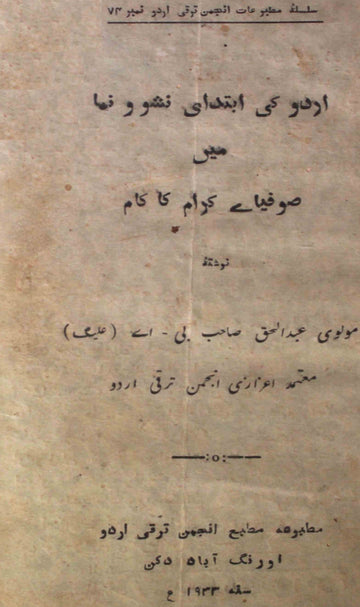 سلسلۂ مطبوعات انجمن ترقی اردو نمبر ۷۳
اردو کی ابتدائی نشو و نما
میں
صوفیاے کرام کا کام
نوشتۂ
مولوی عبدالحق صاحب بی - اے (علیگ)
معتمد اعزازی انجمن ترقی اردو
:o:
مطبوعہ مطبع انجمن ترقی اردو
اورنگ آباد دکن
سنہ ۱۹۳۳ ع